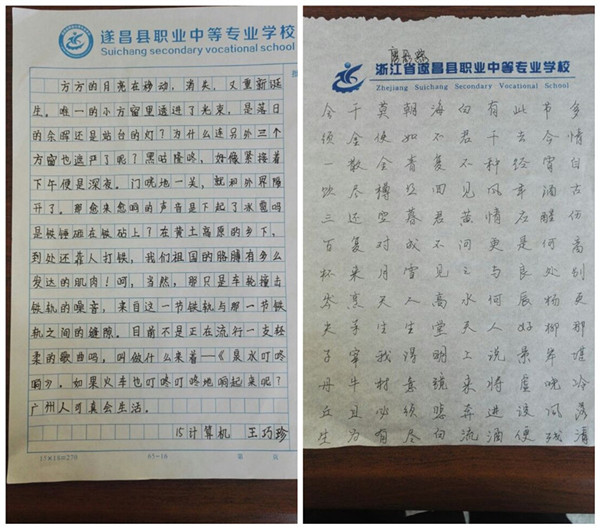 遂昌县职业中等专业学校
Suichang secondary vocational school
方方的月亮在移动，消失，又重新诞
生。唯一的小方窗里透进了光束，是落日
的余晖还是站台的灯？为什么连另外三个
方窗也遮严了呢？黑咕隆咚，好像紧接着
下午便是深夜。门咣地一关，就和外界隔
开了。那愈来愈响的声音是下起了冰雹吗
是铁锤砸在铁砧上？在黄土高原的乡下，
到处还靠人打铁，我们祖国的胳膊有多么
发达的肌肉！呵，当然，那只是车轮撞击
铁轨的噪音，来自这一节铁轨与那一节铁
轨之间的缝隙。目前不是正在流行一支轻
柔的歌曲吗，叫做什么来着——《泉水叮咚
响》。如果火车也叮咚叮咚地响起来呢？
广州人可真会生活。
15计算机 王巧珍
65-16 第 页
浙江省遂昌县职业中等专业学校
Zhejiang Suichang Secondary Vocational School
多情自古伤离别更那堪冷落清
节今宵酒醒何处杨柳岸晓风残
此去经年应是良辰好景虚设便
有千种风情更与何人说将进酒
君不见黄河之水天上来奔流
海不复回君不见高堂明镜悲白
朝如青丝暮成雪人生得意须尽
莫使金樽空对月天生我材必有
千金散尽还复来烹羊宰牛且为
会须一饮三百杯岑夫子丹丘生